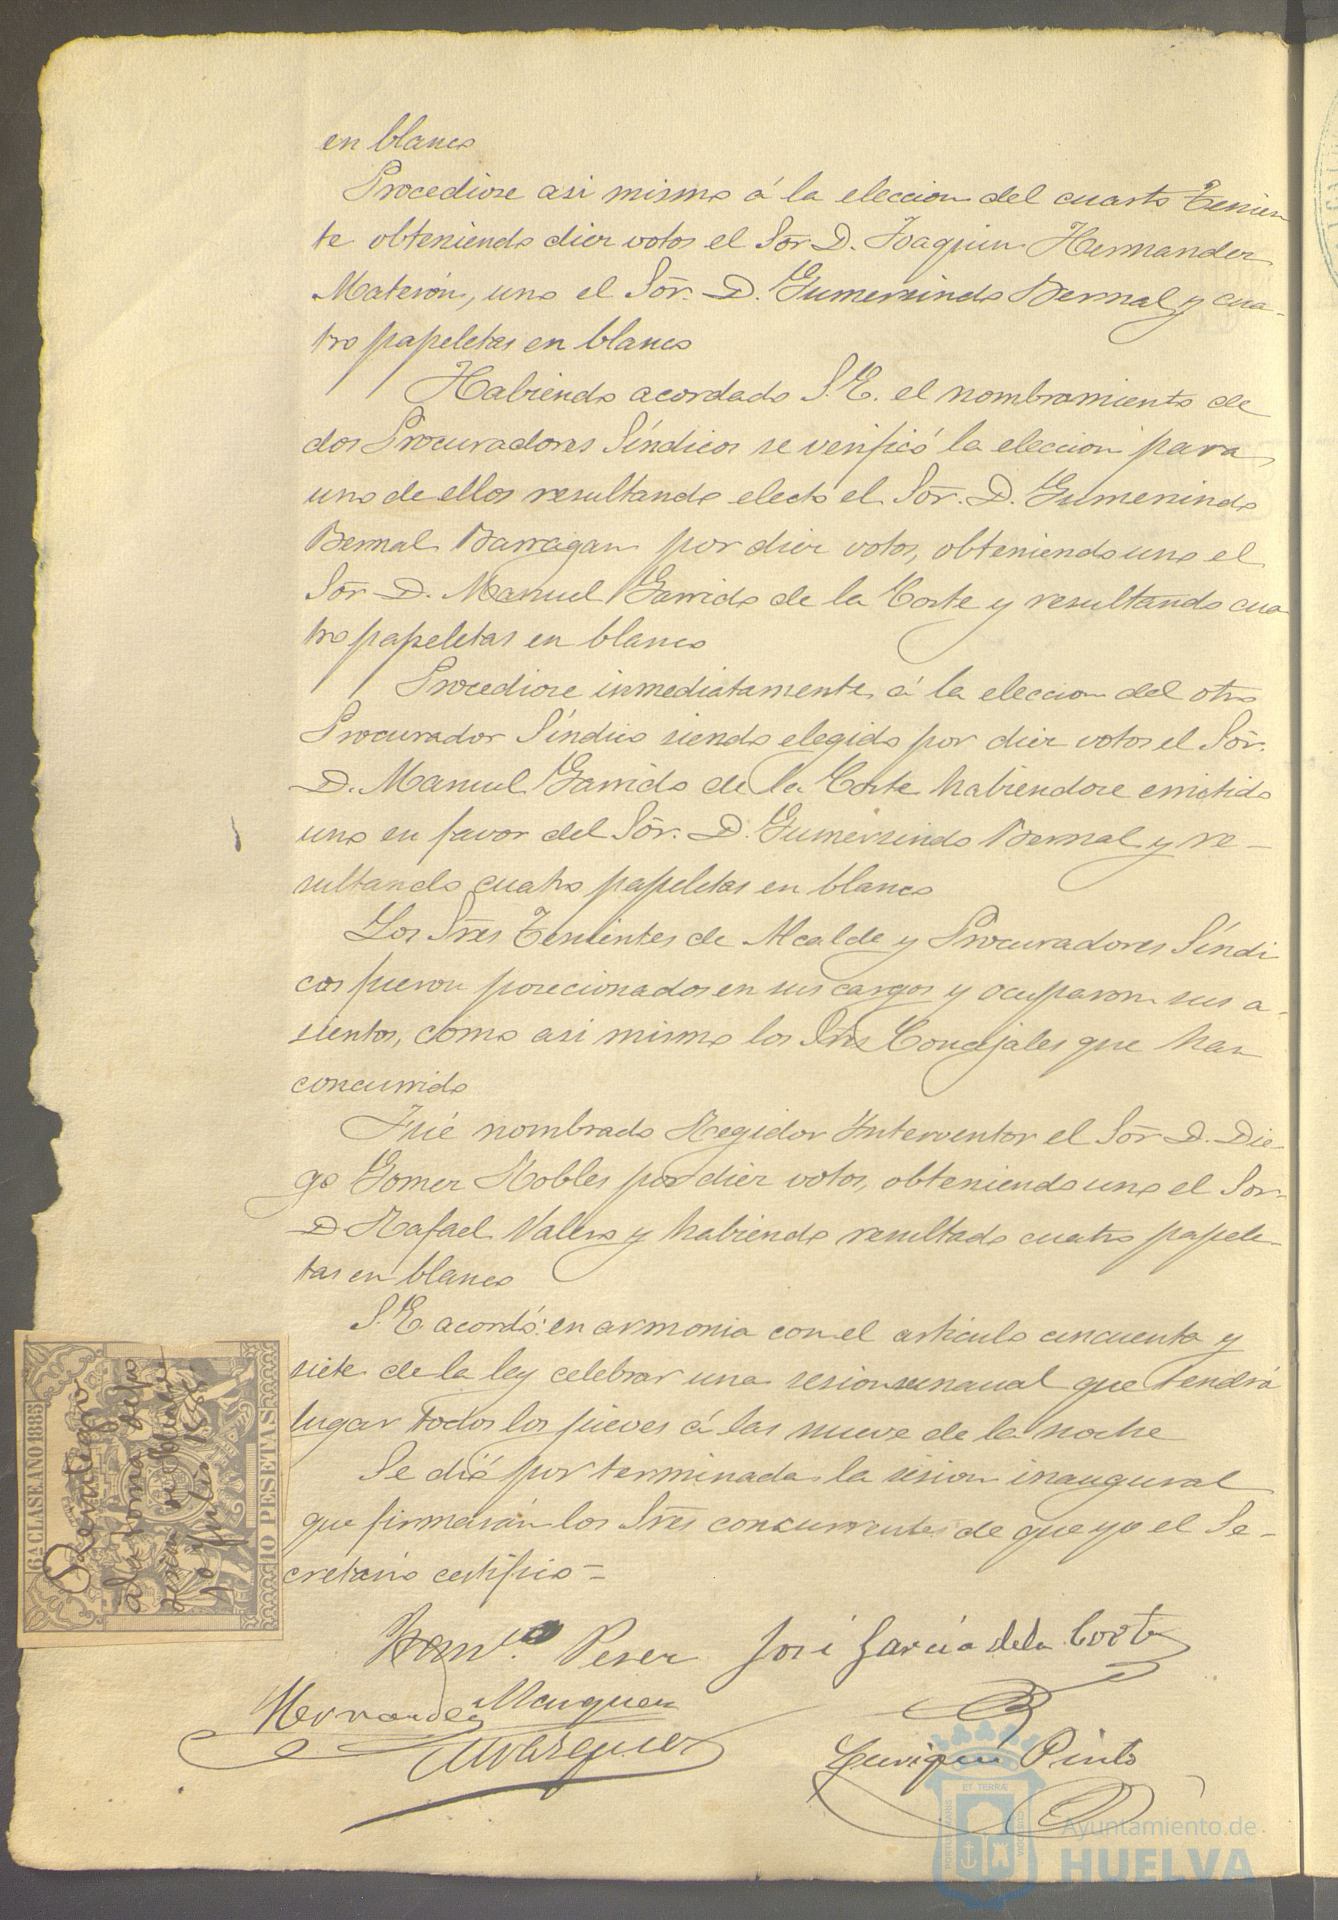 en blanco
Procediose asi mismo á la eleccion del cuarto Tenien
te obteniendo diez votos el Sōr D. Joaquin Hernandez
Materón, uno el Sōr. D. Gumersindo Bernal y cua-
tro papeletas en blanco
Habiendo acordado S.E. el nombramiento de
dos Procuradores Síndicos se verificó la eleccion para
uno de ellos resultando electo el Sōr. D. Gumersindo
Bernal Barragan por diez votos, obteniendo uno el
Sōr D. Manuel Garrido de la Corte y resultando cua
tro papeletas en blanco
Procediose inmediatamente á la eleccion del otro
Procurador Síndico siendo elegido por diez votos el Sōr.
D. Manuel Garrido de la Corte habiendose emitido
uno en favor del Sōr. D. Gumersindo Bernal y re-
sultando cuatro papeletas en blanco
Los Sres Tenientes de Alcalde y Procuradores Síndi
cos fueron posecionados en sus cargos y ocuparon sus a-
sientos, como asi mismo los Sres Concejales que han
concurrido
Fué nombrado Regidor Interventor el Sōr D. Die-
go Gomez Robles por diez votos, obteniendo uno el Sor
D Rafael Valero y habiendo resultado cuatro papele-
tas en blanco
S.E. acordó: en armonia con el articulo cincuenta y
siete de la ley celebrar una sesion semanal que tendrá
lugar todos los jueves á las nueve de la noche
Se dió por terminada la sesion inaugural
que firmarán los Sres concurrentes de que yo el Se-
cretario certifico=
6ª CLASE. AÑO 1885
10 PESETAS
á la toma de
Julio 1885
Franco. Perez José García de la Corte
Hernandez Marquez
Vazquez
Enrique Pinto
Ayuntamiento de
HUELVA